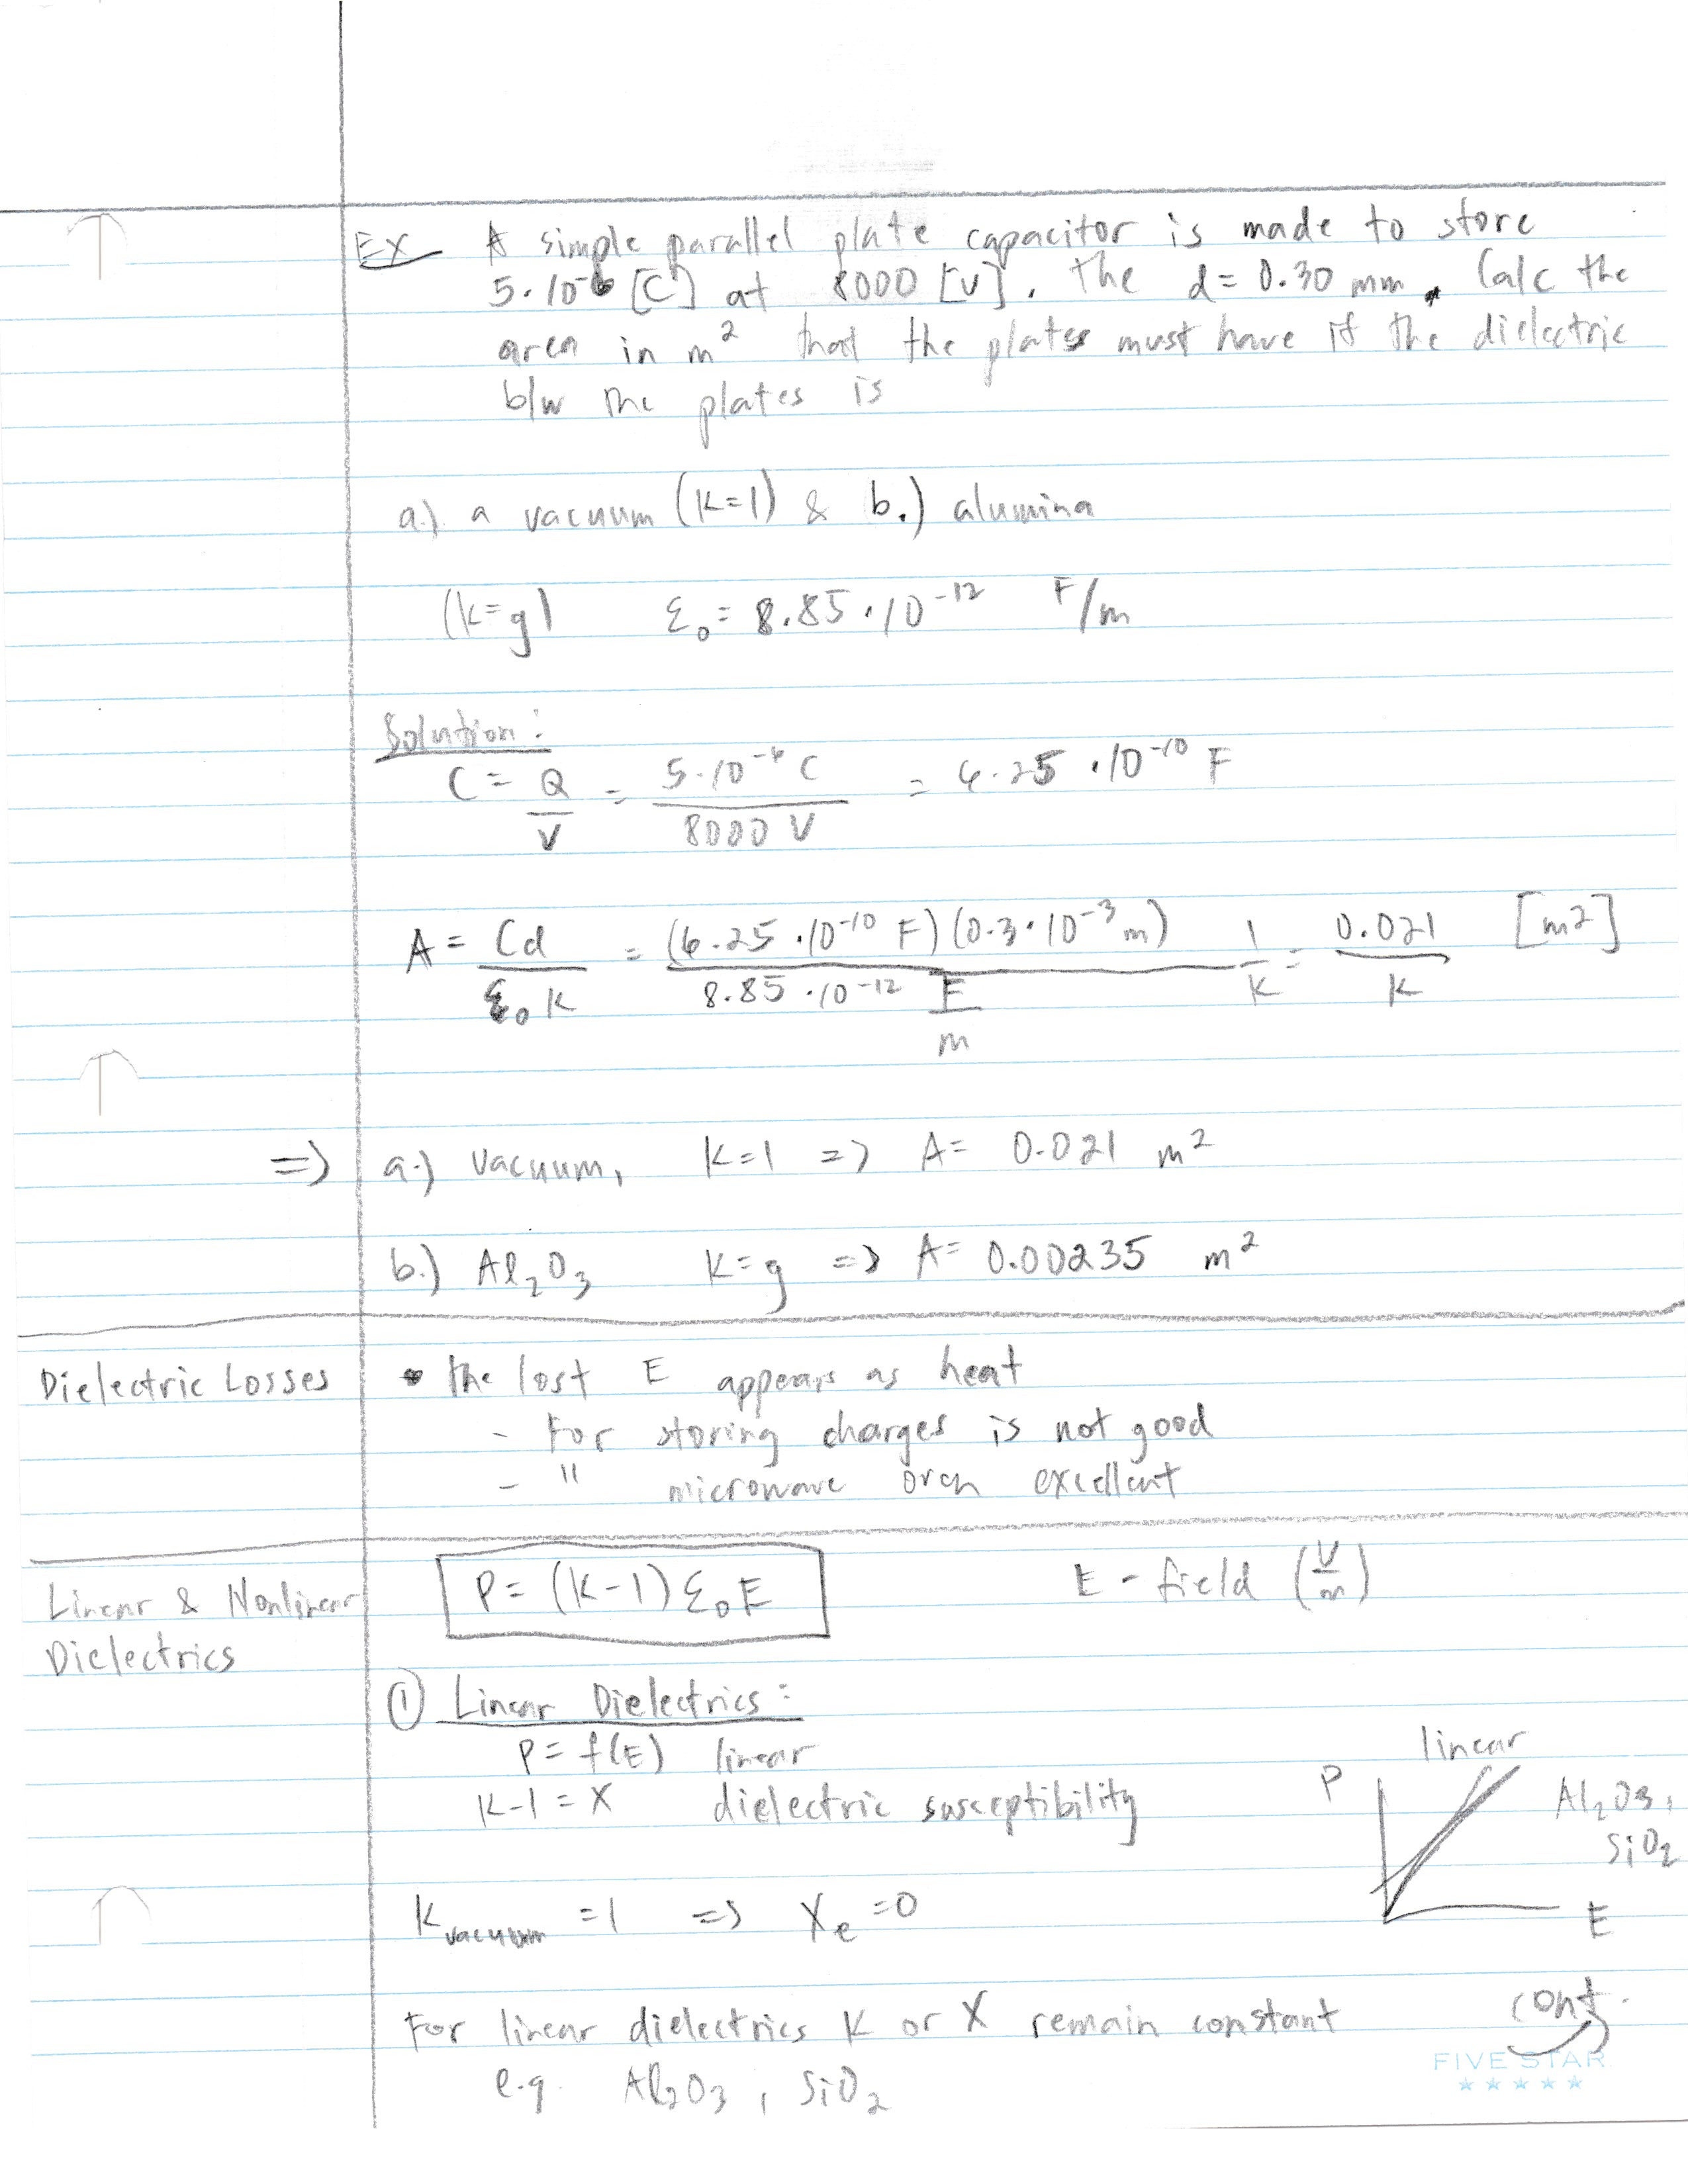 EX A simple parallel plate capacitor is made to store
5·10⁻⁶ [C] at 8000 [V]. The d = 0.30 mm. Calc the
area in m² that the plates must have if the dielectric
b/w the plates is
a.) a vacuum (K=1) & b.) alumina
(K=9) ε₀ = 8.85·10⁻¹² F/m
Solution:
C = Q/V = 5·10⁻⁶ C / 8000 V = 6.25·10⁻¹⁰ F
A = Cd / ε₀K = (6.25·10⁻¹⁰ F)(0.3·10⁻³ m) / 8.85·10⁻¹² F/m 1/K = 0.021/K [m²]
=> a.) vacuum, K=1 => A= 0.021 m²
b.) Al₂O₃ K=9 => A= 0.00235 m²
Dielectric Losses • The lost E appears as heat
- For storing charges is not good
- " microwave oven excellent
Linear & Nonlinear
Dielectrics
P = (K-1) ε₀E E - field (V/m)
① Linear Dielectrics:
P = f(E) linear
K-1 = X dielectric susceptibility
linear
P
Al₂O₃,
SiO₂
E
K vacuum = 1 => Xe = 0
For linear dielectrics K or X remain constant
e.g. Al₂O₃, SiO₂
cont.
FIVE STAR
★★★★★